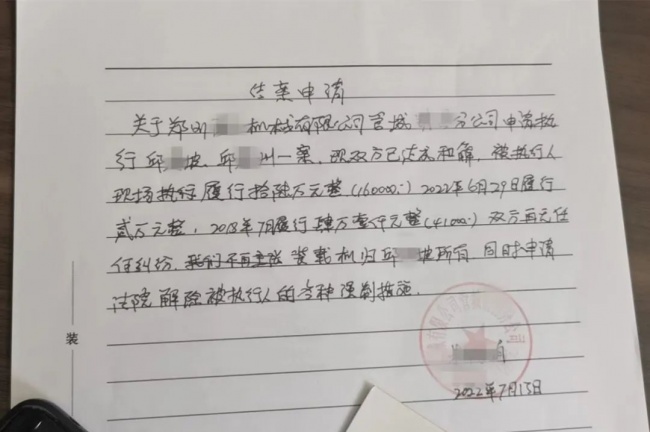 结案申请
关于郑州 机械有限公司管城 分公司申请执
行邱 坡、邱 州一案,现双方已达成和解,被执行人
现场执行履行拾陆万元整(160000.-)2022年6月29日履行
贰万元整,2018年7月履行肆万壹仟元整(41000.-)双方再无任
何纠纷,我们不再主张装载机归邱 坡所有,同时申请
法院解除被执行人的各种强制措施.
2022年7月15日
装